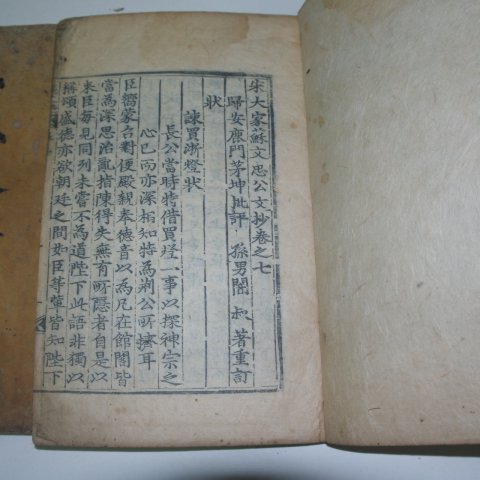 宋大家蘇文忠公文抄卷之七
歸安鹿門茅坤批評 孫男闇叔著重訂
狀
諫買浙燈狀
長公當時特借買燈一事以探神宗之
心已而亦深相知特為荆公所擠耳
臣嚮蒙召對便殿親奉德音以為凡在館閣皆
當為深思治亂指陳得失無有所隱者自是以
來臣每見同列未嘗不為道陛下此語非獨以
稱頌盛德亦欲朝廷之間如臣等輩皆知陛下